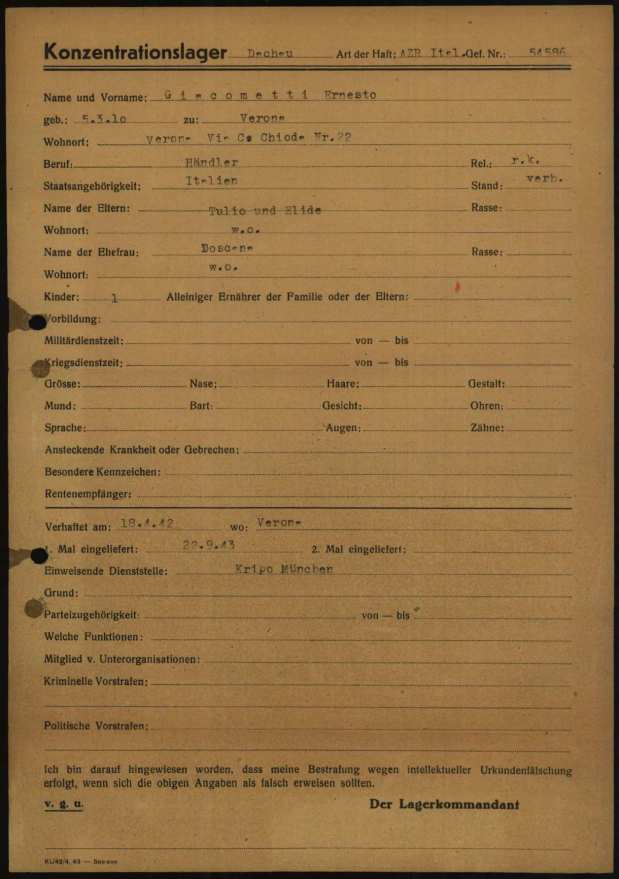 Konzentrationslager Dachau Art der Haft: AZR Ital. Gef. Nr.: 54586
Name und Vorname: Giacometti Ernesto
geb.: 5.3.10 zu: Verona
Wohnort: Verona Via Ca Chioda Nr.22
Beruf: Händler Rel.: r.k.
Staatsangehörigkeit: Italien Stand: verh.
Name der Eltern: Tulio und Elide Rasse:
Wohnort: w.o.
Name der Ehefrau: Doscana Rasse:
Wohnort: w.o.
Kinder: 1 Alleiniger Ernährer der Familie oder der Eltern:
Vorbildung:
Militärdienstzeit: von — bis
Kriegsdienstzeit: von — bis
Grösse: Nase: Haare: Gestalt:
Mund: Bart: Gesicht: Ohren:
Sprache: Augen: Zähne:
Ansteckende Krankheit oder Gebrechen:
Besondere Kennzeichen:
Rentenempfänger:
Verhaftet am: 18.4.42 wo: Verona
1. Mal eingeliefert: 22.9.43 2. Mal eingeliefert:
Einweisende Dienststelle: Kripo München
Grund:
Parteizugehörigkeit: von — bis
Welche Funktionen:
Mitglied v. Unterorganisationen:
Kriminelle Vorstrafen:
Politische Vorstrafen:
Ich bin darauf hingewiesen worden, dass meine Bestrafung wegen intellektueller Urkundenfälschung
erfolgt, wenn sich die obigen Angaben als falsch erweisen sollten.
v. g. u. Der Lagerkommandant